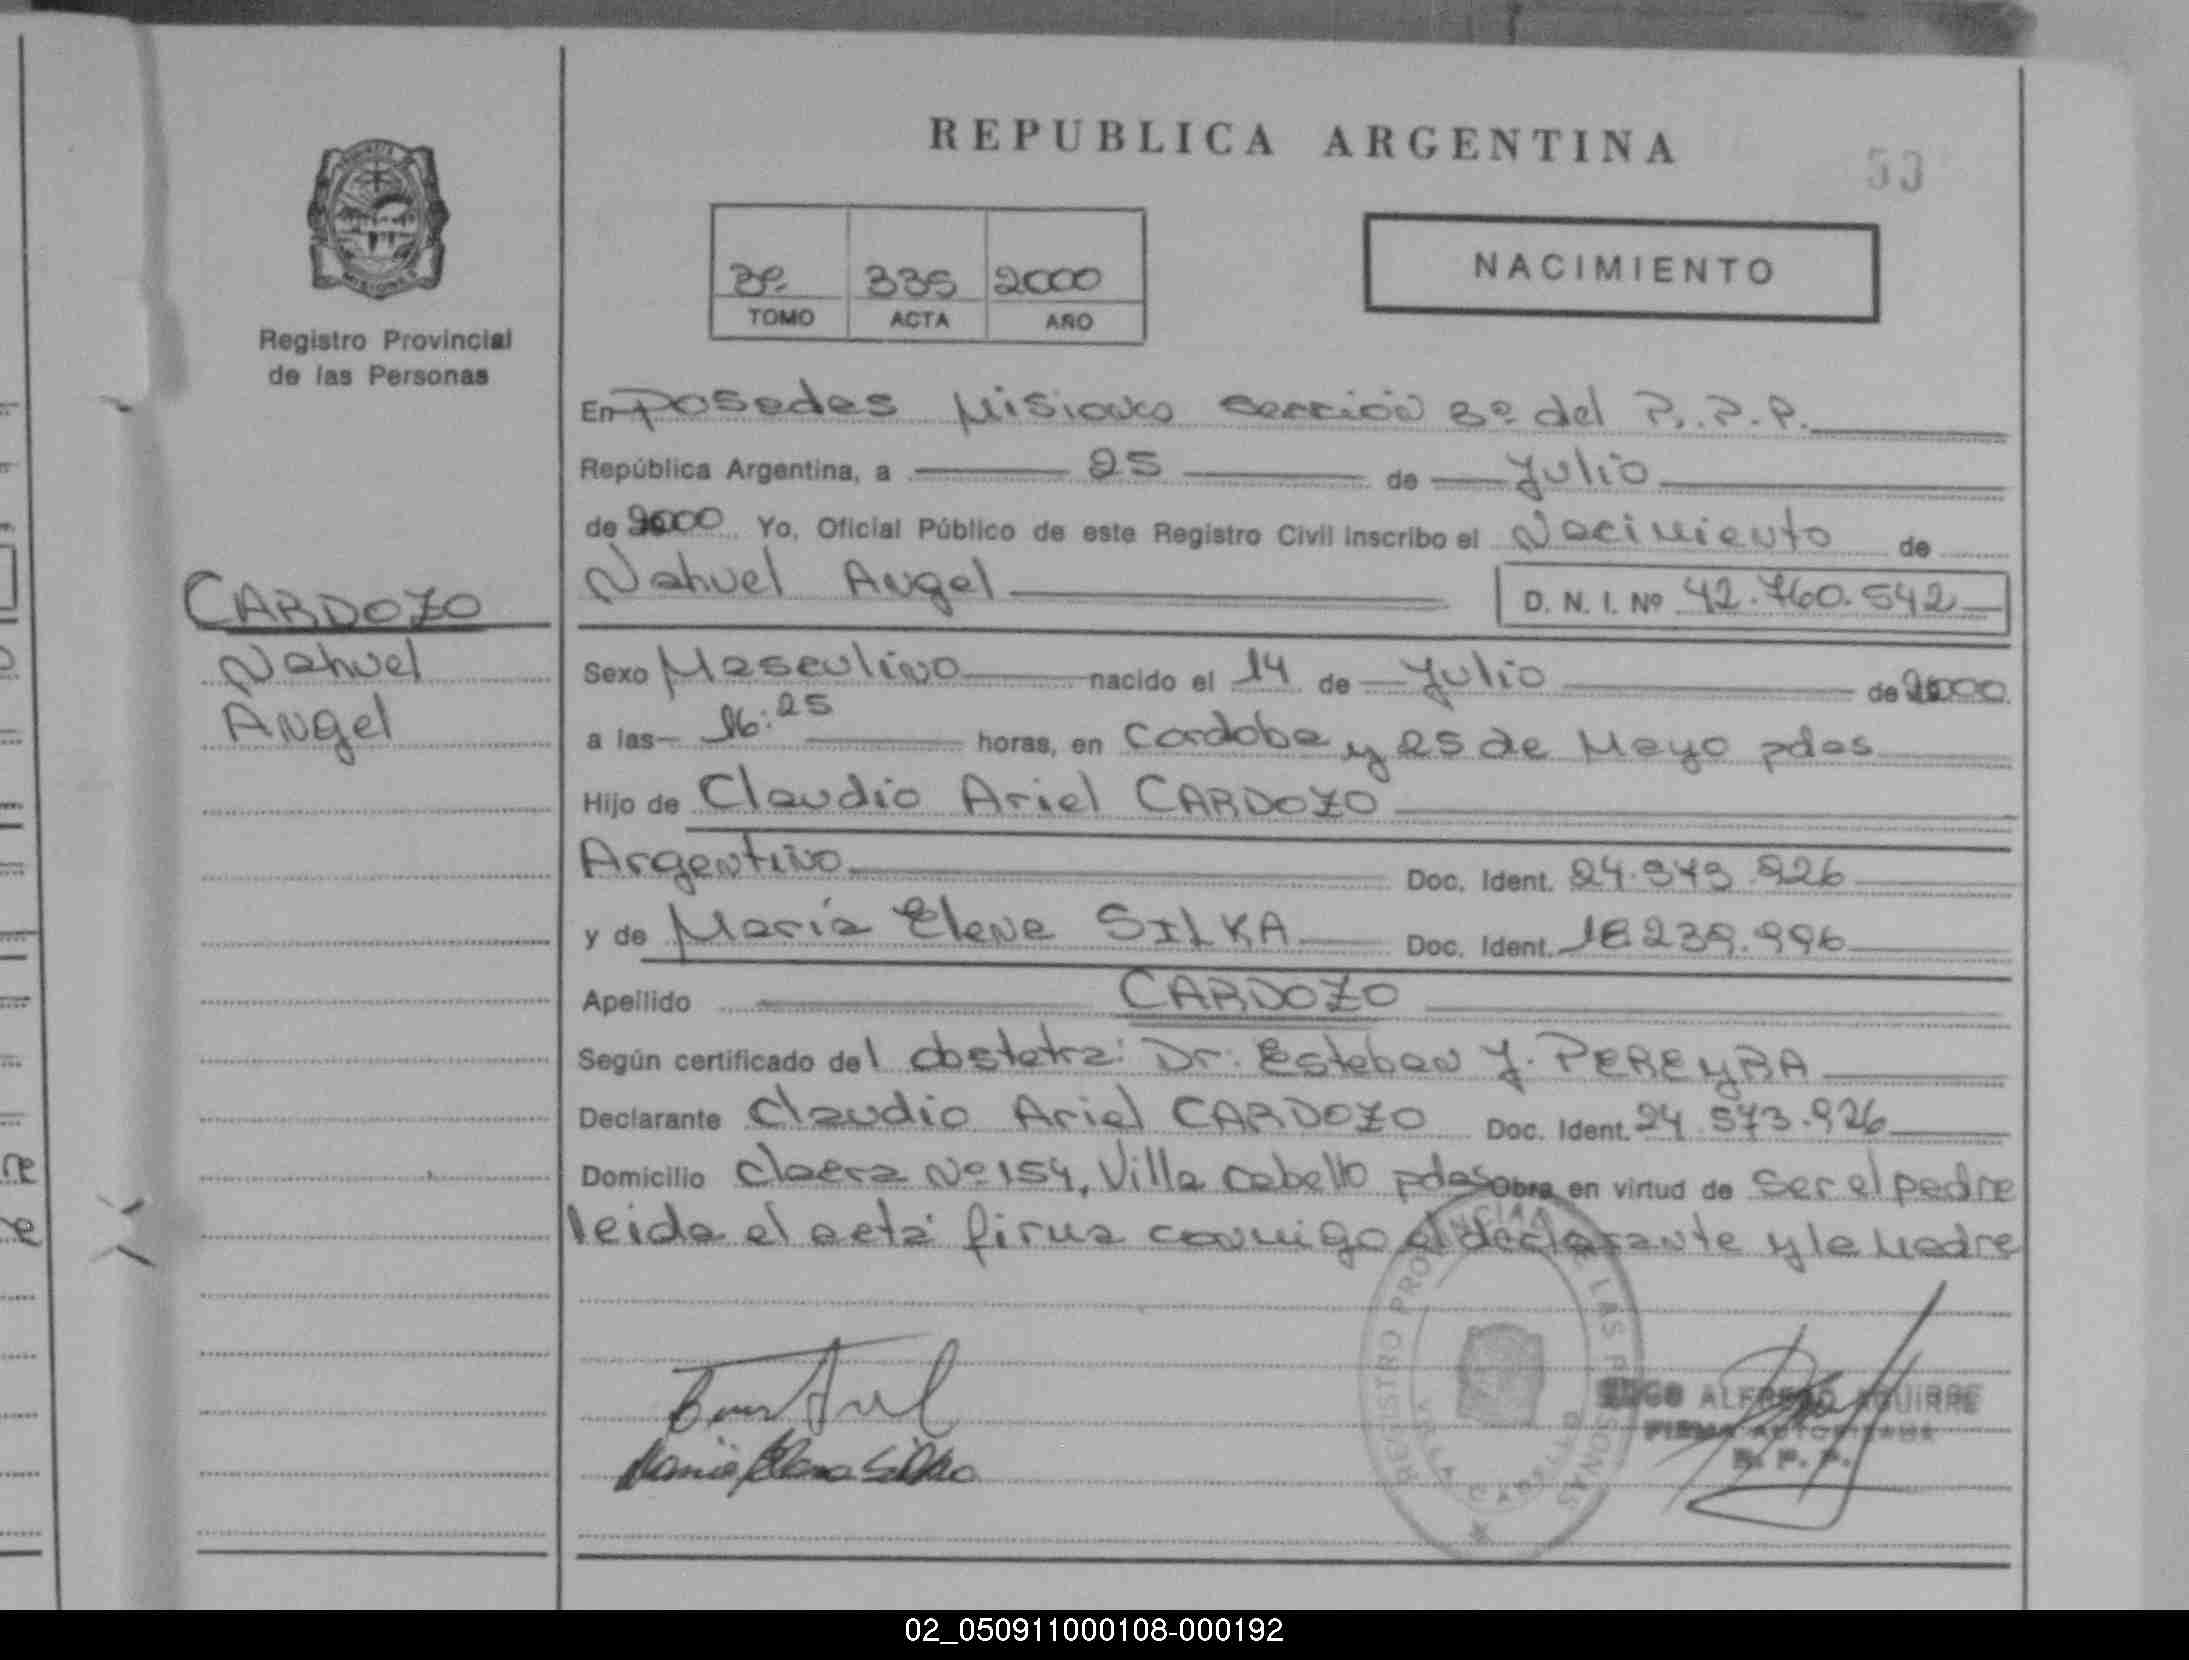 REPUBLICA ARGENTINA
53
3º 335 2000
TOMO ACTA AÑO
NACIMIENTO
Registro Provincial
de las Personas
CARDOZO
Nahuel
Angel
En Posadas Misiones sección 3º del R.P.P.
República Argentina, a 25 de Julio
de 2000 Yo, Oficial Público de este Registro Civil inscribo el Nacimiento de
Nahuel Angel D. N. I. Nº 42.760.542
Sexo Masculino nacido el 14 de Julio de 2000
a las 16:25 horas, en Cordoba y 25 de Mayo pdas
Hijo de Claudio Ariel CARDOZO
Argentino Doc. Ident. 24.573.926
y de María Elena SILKA Doc. Ident. 18.239.996
Apellido CARDOZO
Según certificado del obstetra: Dr. Esteban J. PEREYRA
Declarante Claudio Ariel CARDOZO Doc. Ident. 24.573.926
Domicilio Nº 154, Villa Cabello pdas Obra en virtud de ser el padre
leida el acta firma conmigo el declarante y la Madre
Maria Elena Silka
REGISTRO PROVINCIAL DE LAS PERSONAS
VILLA CABELLO
ALFREDO AGUIRRE
FIRMA AUTORIZADA
R. P. P.
02_050911000108-000192